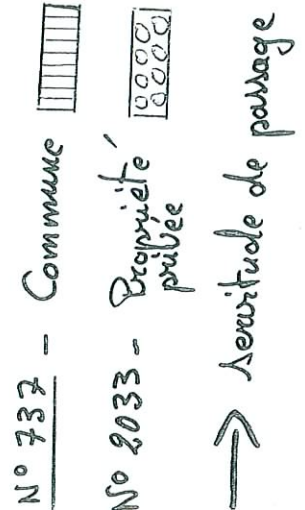 N° 737 - Commune
N° 2033 - Propriété
privée
servitude de passage